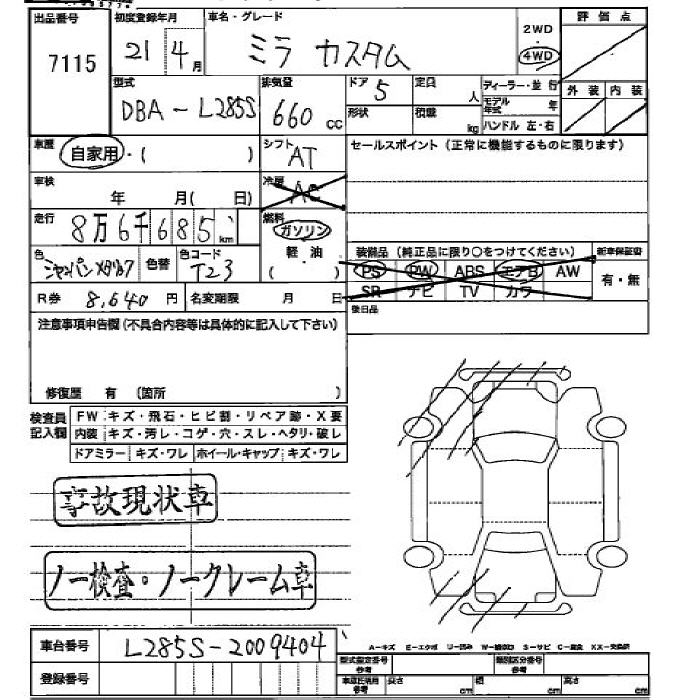 出品番号 初度登録年月 車名・グレード 2WD 評価点
7115 21 4月 ミラ カスタム 4WD
型式 排気量 ドア 定員 ディーラー・並行 外装 内装
DBA-L285S 660cc 5 人 モデル年式 年
形状 積載 kg ハンドル 左・右
車歴 自家用・( ) シフト AT セールスポイント (正常に機能するものに限ります)
車検 年 月( 日) 冷房 AC
走行 8万6千685km 燃料 ガソリン
軽油 ( ) 装備品 (純正品に限り○をつけてください) 新車保証書
色 シャンパンメタリック 色替 色コード T23 PS PW ABS エアB AW 有・無
R券 8,640円 名変期限 月 日 SR ナビ TV カワ
注意事項申告欄(不具合内容等は具体的に記入して下さい) 後日品
修復歴 有 (箇所 )
検査員 FW キズ・飛石・ヒビ割・リペア跡・X要
記入欄 内装 キズ・汚レ・コゲ・穴・スレ・ヘタリ・破レ
ドアミラー キズ・ワレ ホイール・キャップ キズ・ワレ
事故現状車
ノー検査・ノークレーム車
車台番号 L285S-2009404
A-キズ E-エクボ U-凹み W-補修跡 S-サビ C-腐食 XX-交換済
登録番号 型式指定番号 参考 類別区分番号 参考
車庫証明用 参考 長さ cm 幅 cm 高さ cm